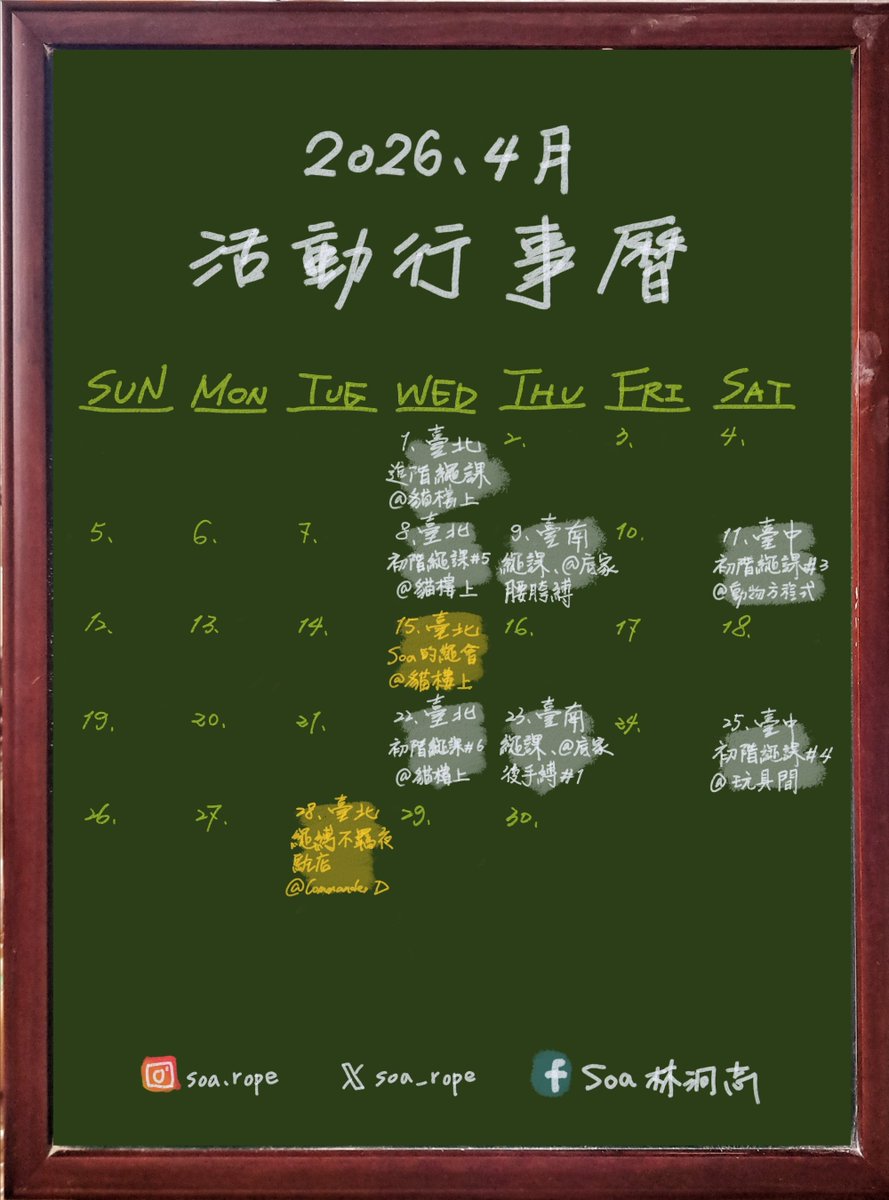 2026、4月
活動行事曆
SUN MON TUE WED THU FRI SAT
1、臺北
進階繩課
@貓樓上
2、
3、
4、
5、
6、
7、
8、臺北
初階繩課#5
@貓樓上
9、臺南
繩課、@底家
腰胯縛
10、
11、臺中
初階繩課#3
@動物方程式
12、
13、
14、
15、臺北
Soa的繩會
@貓樓上
16、
17
18、
19、
20、
21、
22、臺北
初階繩課#6
@貓樓上
23、臺南
繩課、@底家
後手縛#1
24、
25、臺中
初階繩課#4
@玩具間
26、
27、
28、臺北
繩縛不羈夜
駐店
@Commander D
29、
30、
soa.rope
soa_rope
Soa 林洞